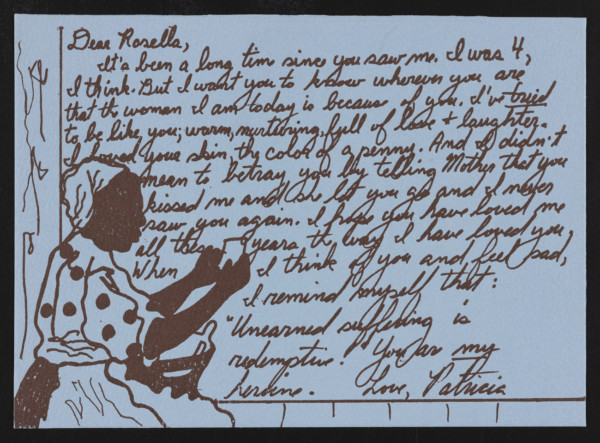 Dear Rosella,
It's been a long time since you saw me. I was 4,
I think. But I want you to know wherever you are
that the woman I am today is because of you. I've tried
to be like you; warm, nurturing, full of love + laughter.
I loved your skin, the color of a penny. And I didn't
mean to betray you by telling Mother that you
kissed me and she let you go and I never
saw you again. I hope you have loved me
all these years the way I have loved you.
When I think of you and feel sad,
I remind myself that:
"Unearned suffering is
redemptive." You are my
heroine. Love, Patricia